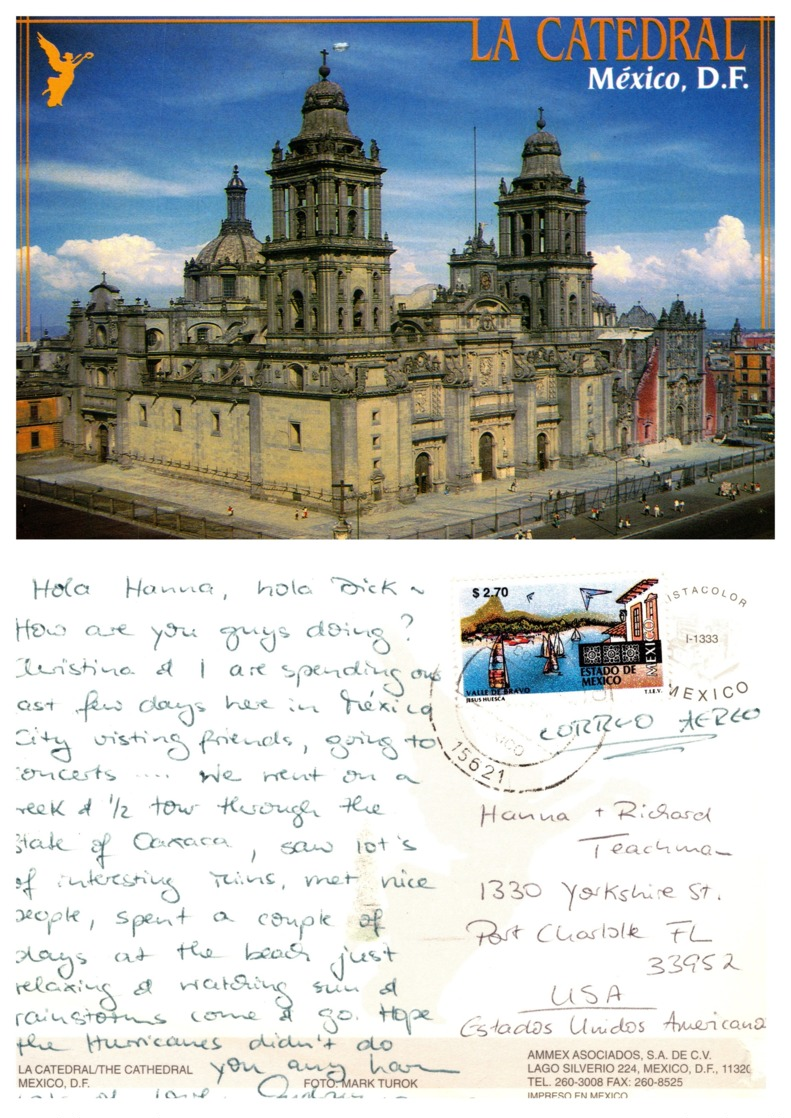 LA CATEDRAL
México, D.F.
Hola Hanna, hola Dick ~
How are you guys doing?
Christina & I are spending our
ast few days here in México
City visting friends, going to
oncerts .... We went on a
eek & 1/2 tour through the
State of Oaxaca, saw lot's
of interesting ruins, met nice
people, spent a couple of
days at the beach just
relaxing & watching sun &
rainstorms come & go. Hope
the Hurricanes didn't do
you any harm
lots of love,
$ 2.70
MEXICO
ESTADO DE
MEXICO
VALLE DE BRAVO
JESUS HUESCA
T.I.E.V.
ISTACOLOR
I-1333
MEXICO
15621
CORREO AEREO
Hanna + Richard
Teachman
1330 Yorkshire St.
Port Charlotte FL
33952
USA
Estados Unidos Americana
LA CATEDRAL/THE CATHEDRAL
MEXICO, D.F.
FOTO: MARK TUROK
AMMEX ASOCIADOS, S.A. DE C.V.
LAGO SILVERIO 224, MEXICO, D.F., 11320
TEL. 260-3008 FAX: 260-8525
IMPRESO EN MEXICO